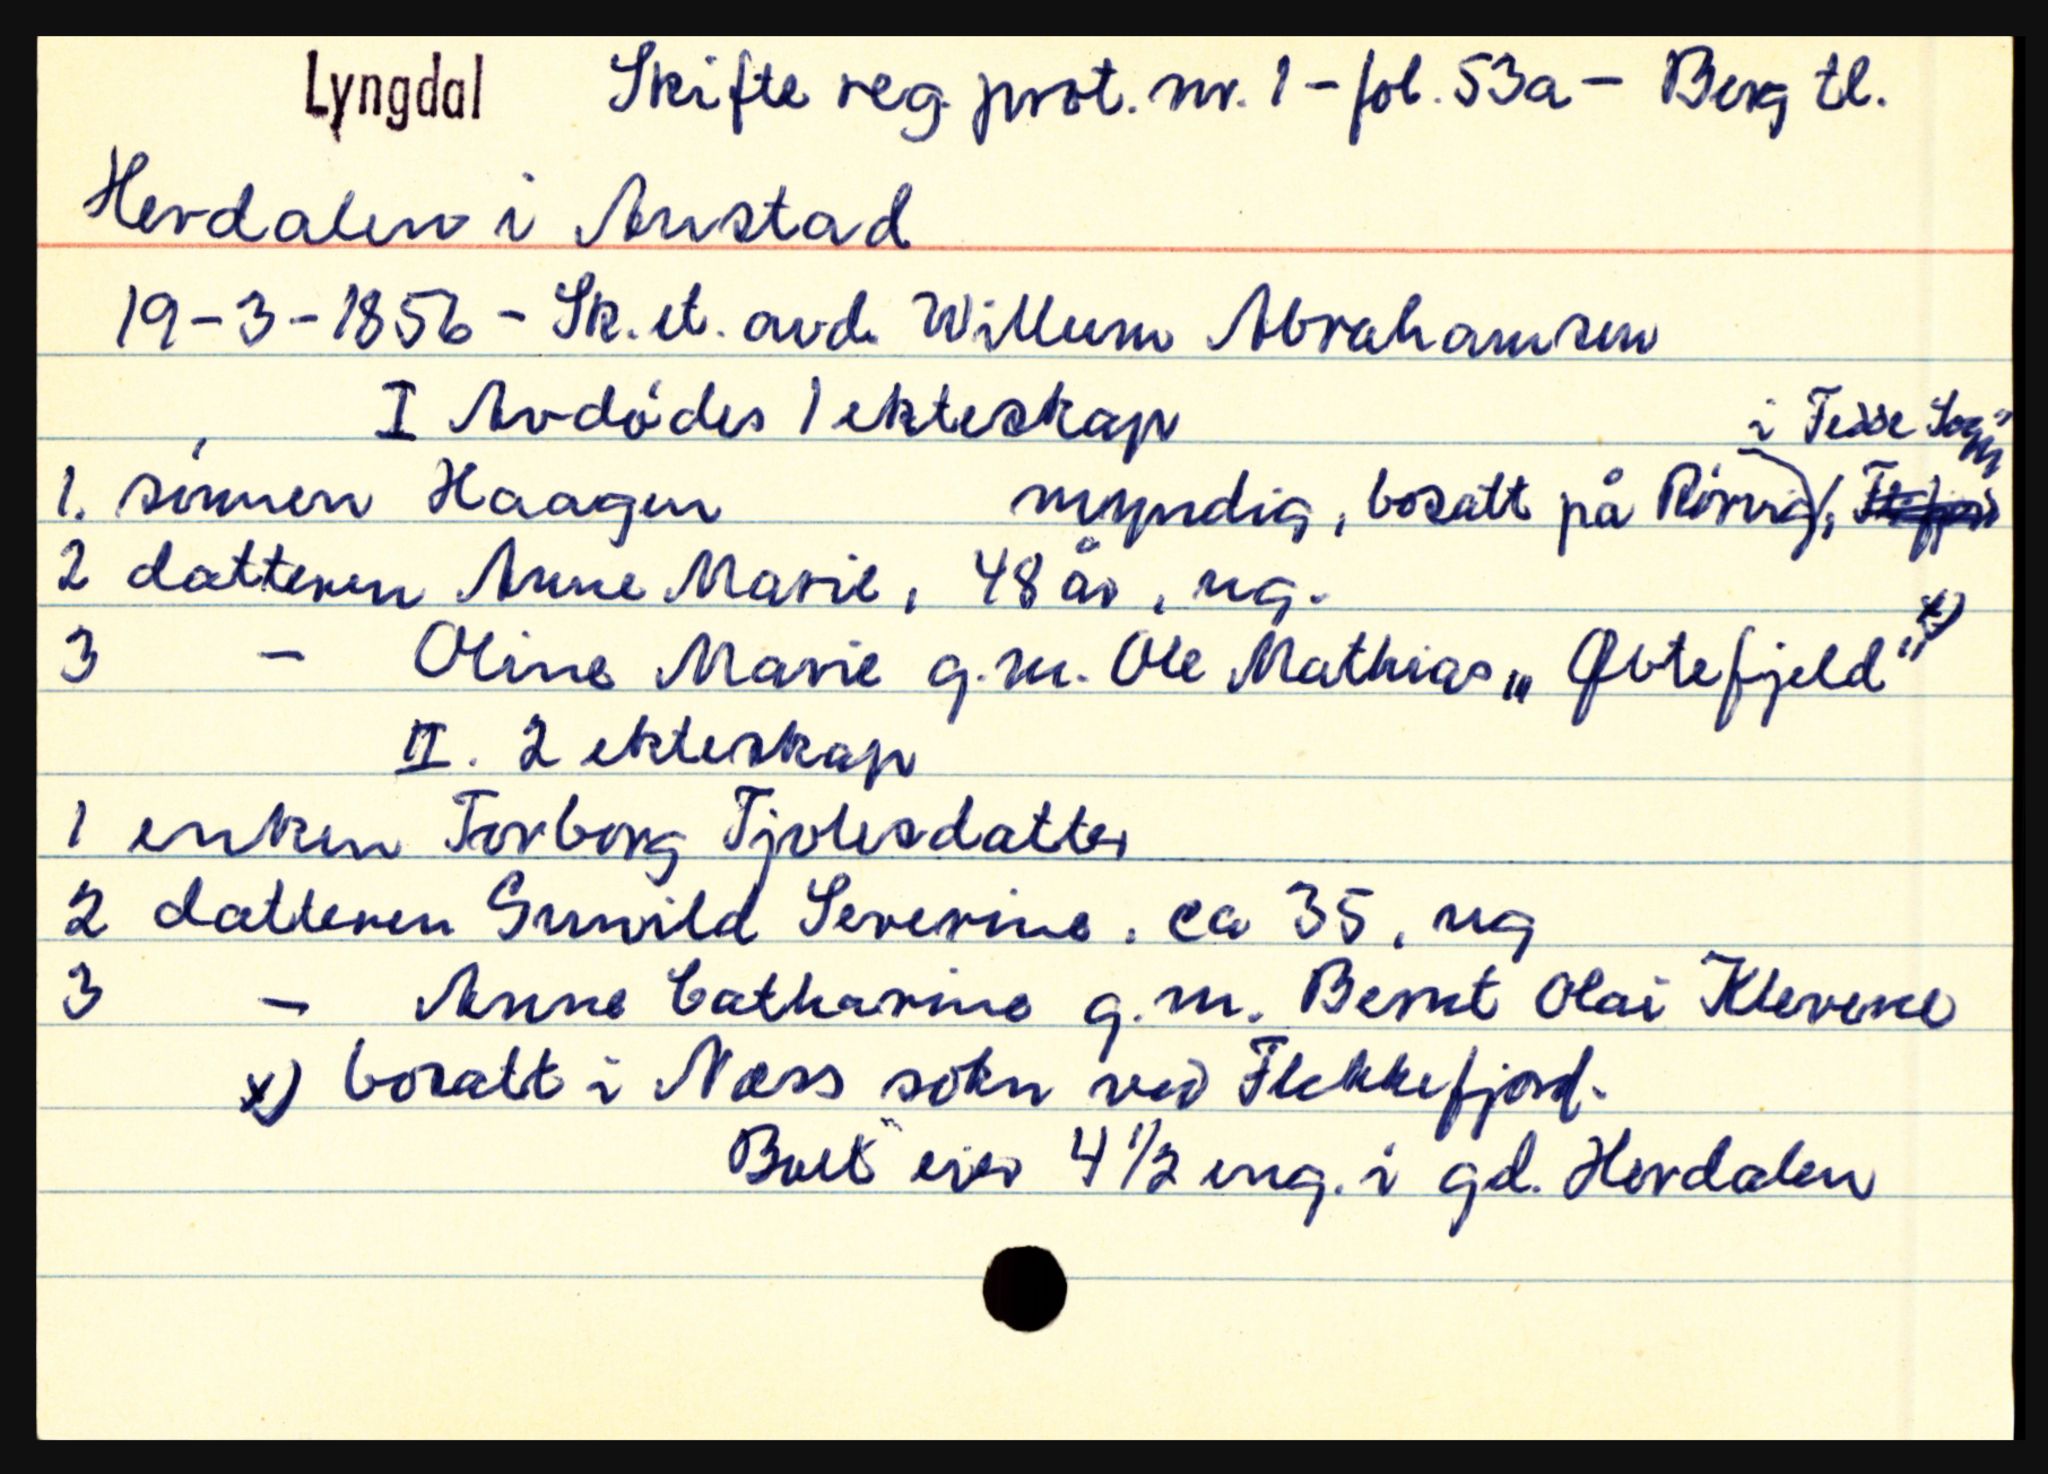 Lyngdal Skifte reg. prot. nr. 1 - fol. 53a - Berg tl.
Herdalen i Austad
19-3-1856 - Sk. et. avd. Willum Abrahamsen
I Avdødes 1 ekteskap
i Fedde Sogn"
1. sønnen Haagen myndig, bosatt på Rørvig,
2 datteren Anne Marie, 48 år, ug.
3 - Oline Marie g.m. Ole Mathias „ Øvtefjeld" x)
II. 2 ekteskap
1 enken Torborg Tjølesdatter
2 datteren Gunvild Severine. ca 35, ug
3 - Anne Catharine g.m. Bernt Olai Klevene
x) bosatt i Næss sokn ved Flekkefjord.
Boet eier 4 1/2 eng. i gd. Herdalen